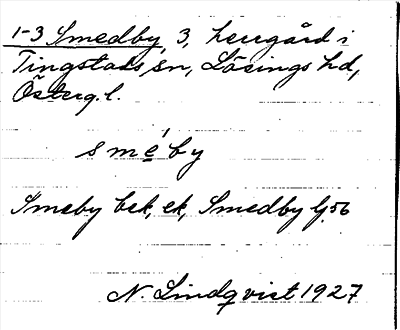 1-3 Smedby, 3, herrgård i
Tingstads sn, Lösings hd,
Österg.l.
smeby
Smeby bek, ek, Smedby G56
N. Lindqvist 1927